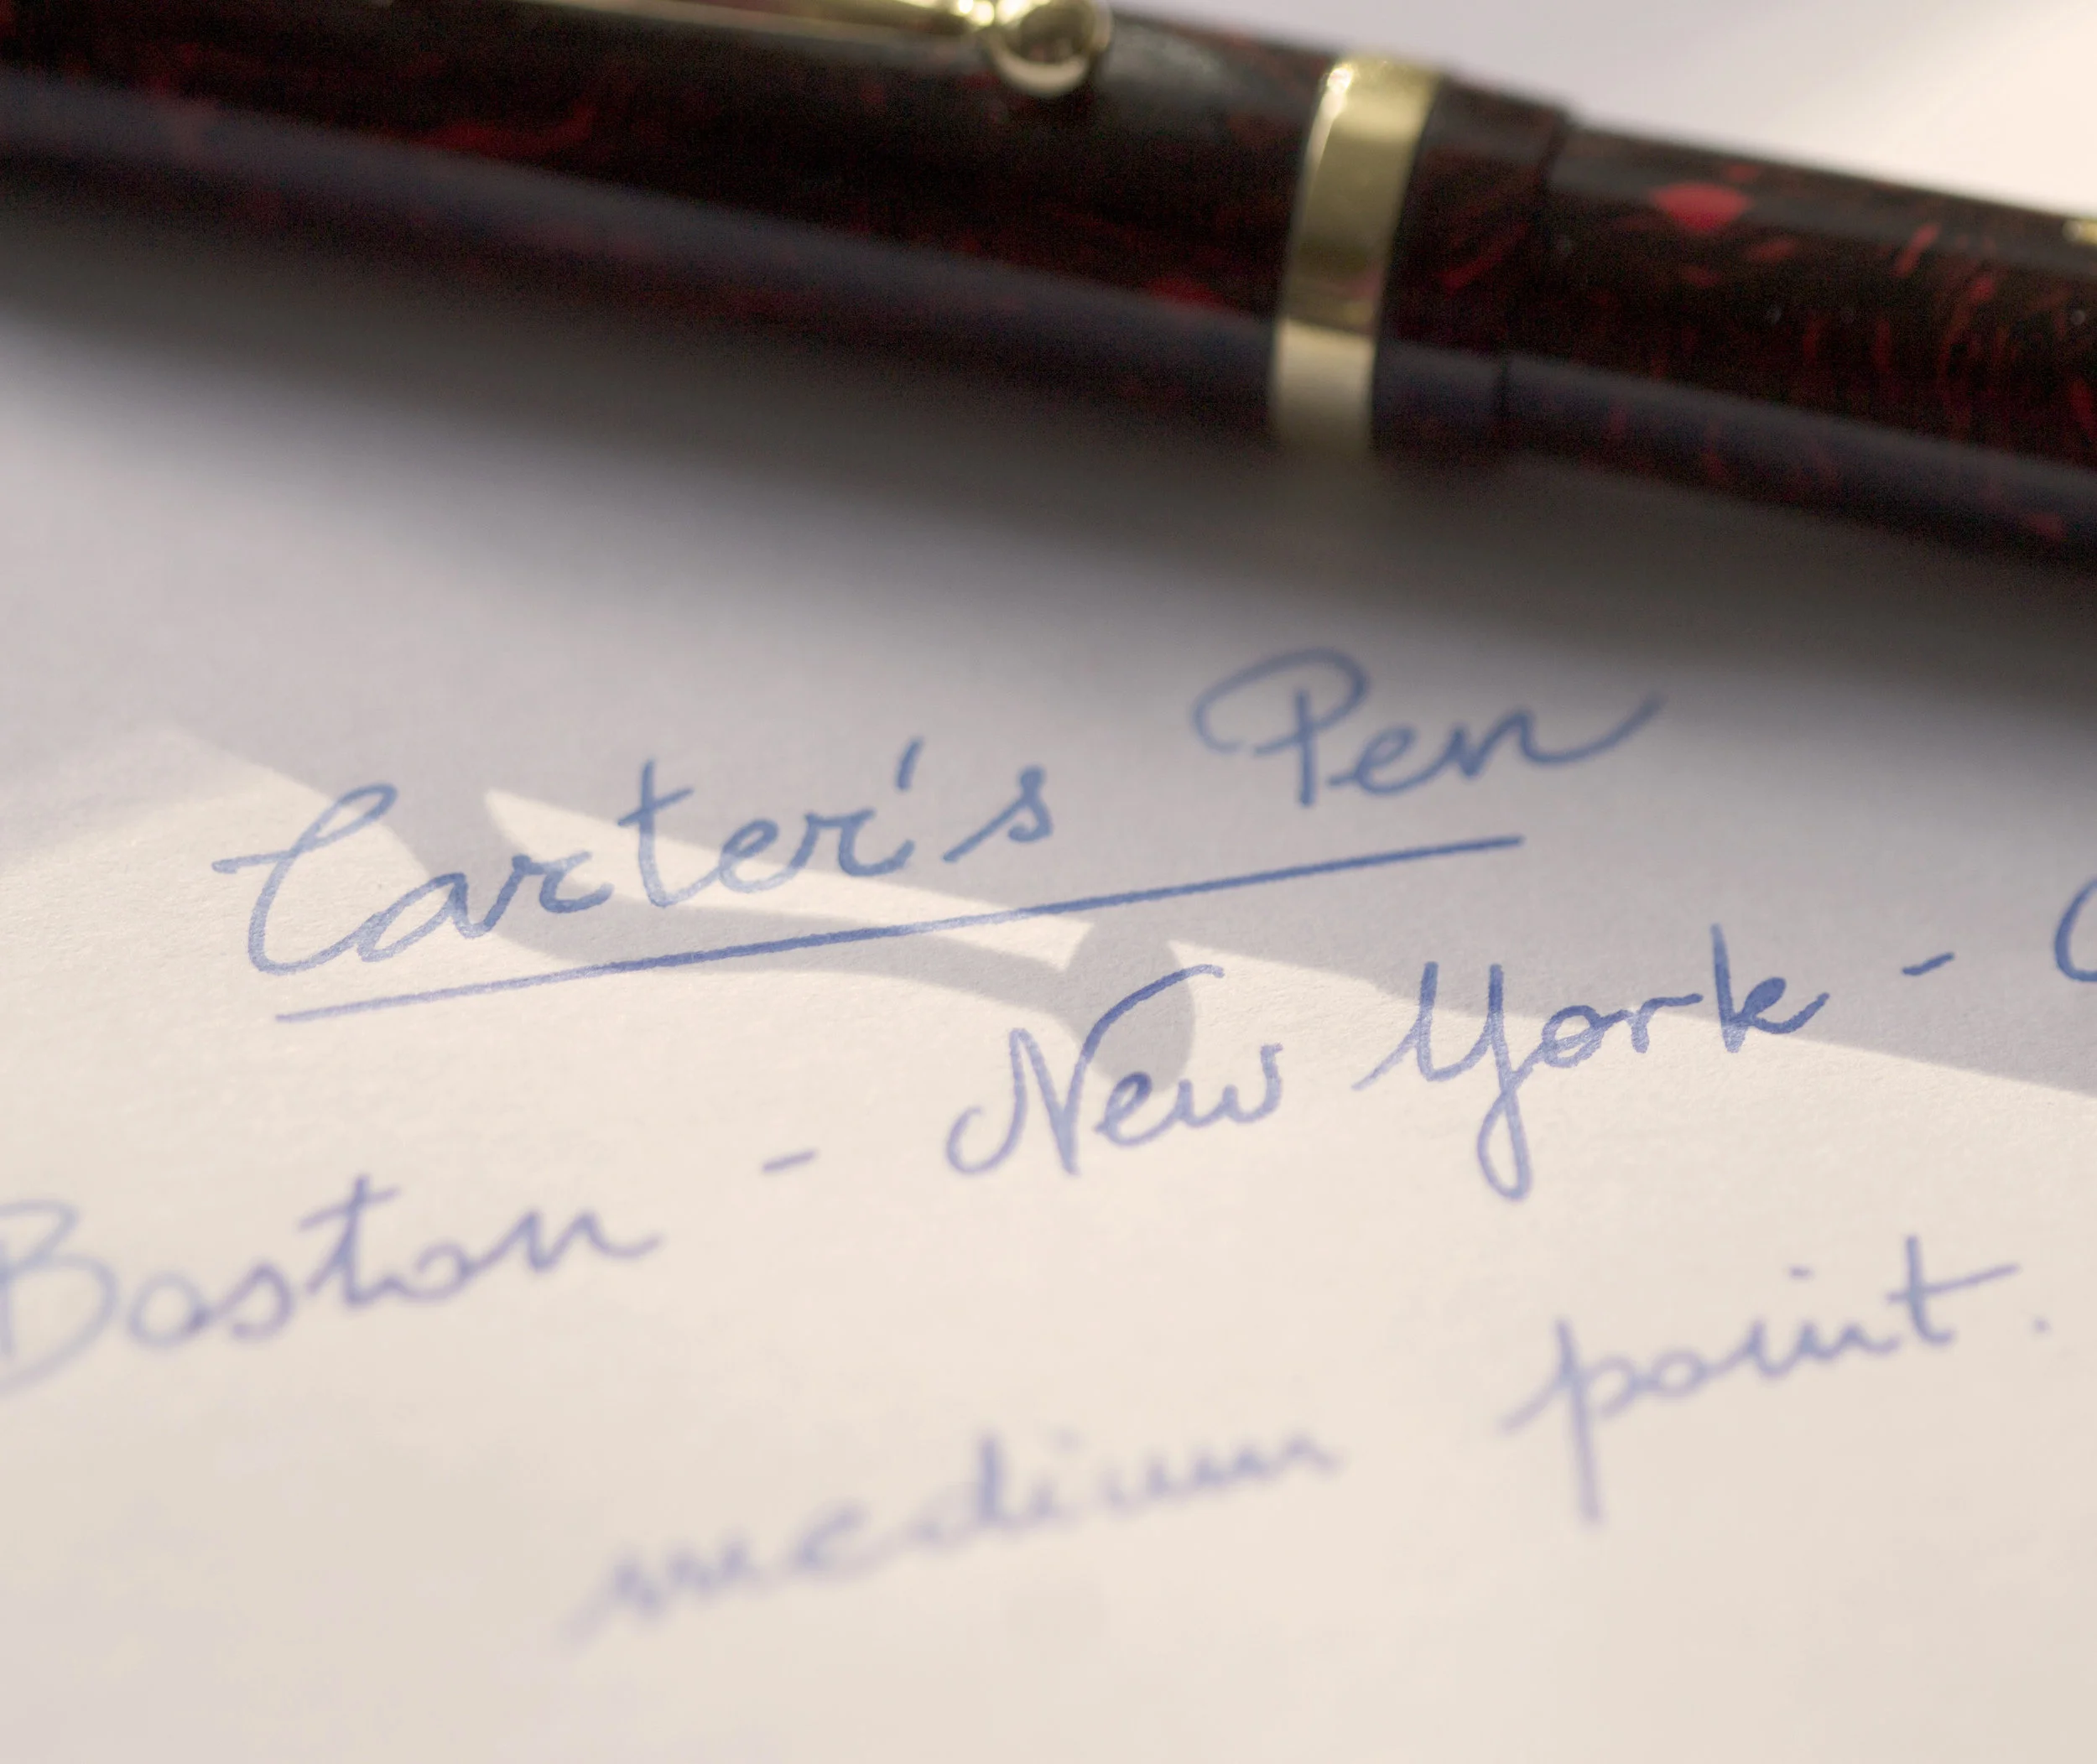 Carter's Pen
Boston - New York - C
medium point.